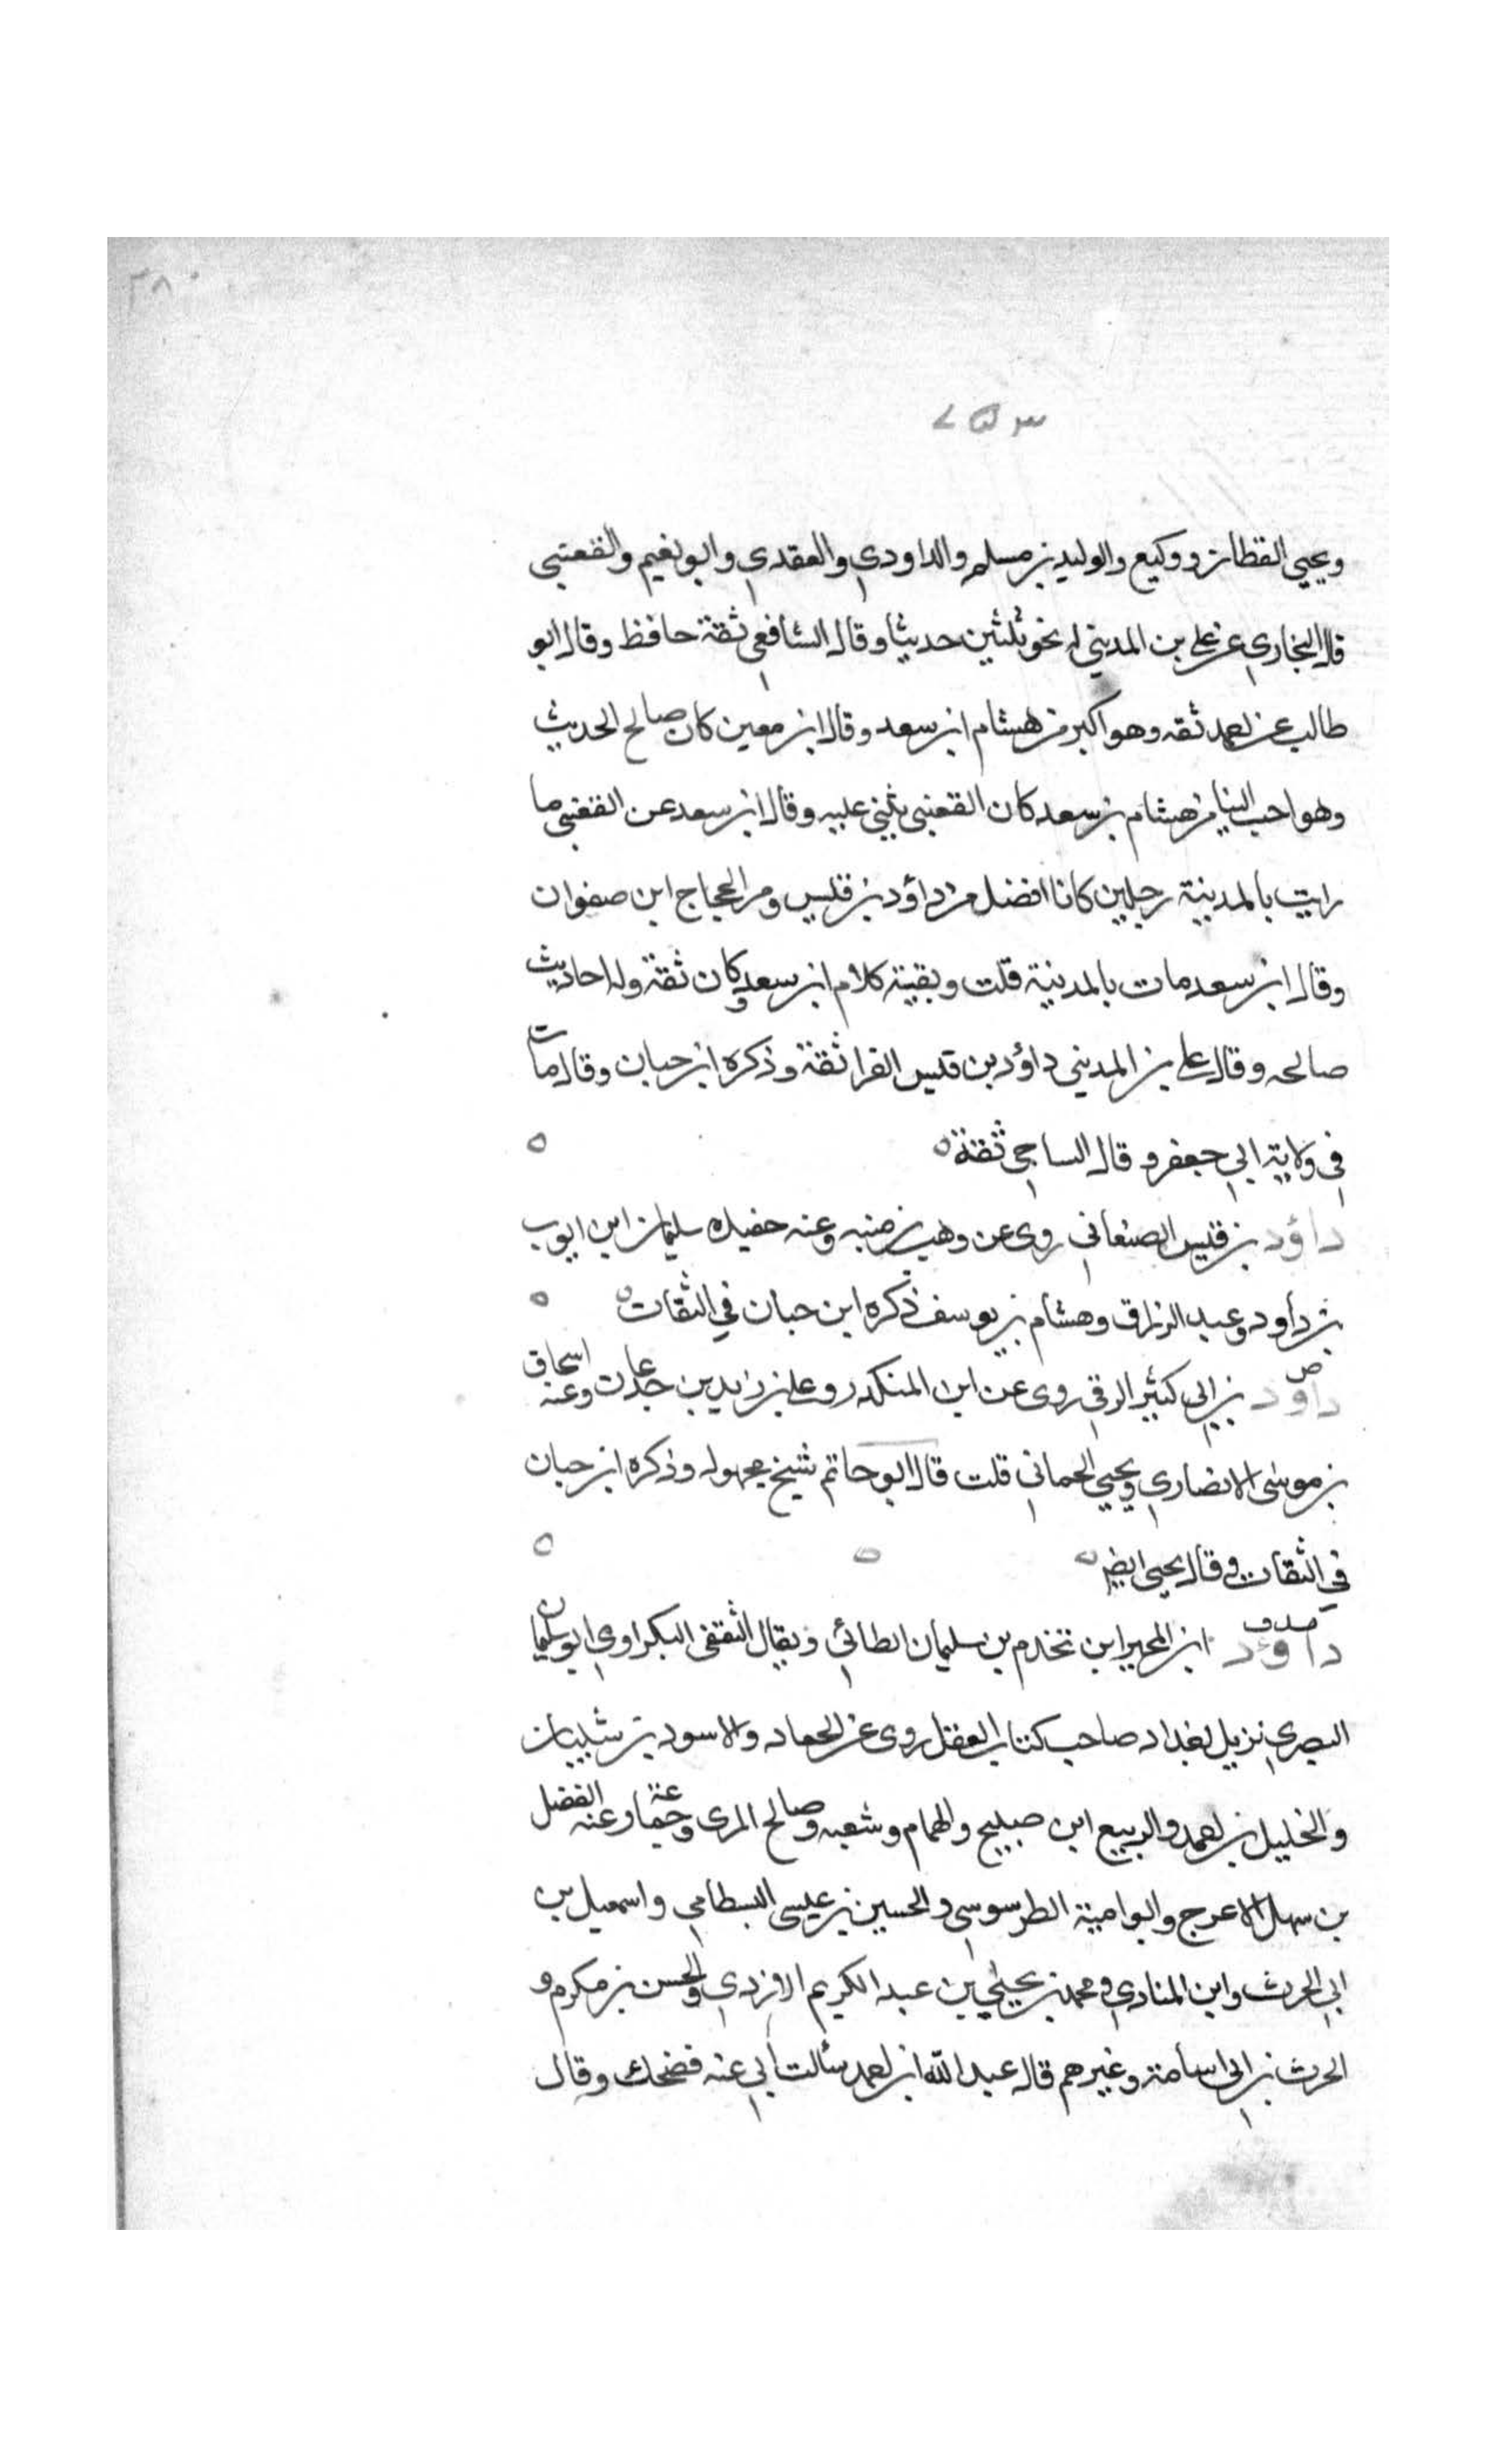 ويحيى القطان ووكيع والوليد بن مسلم والداودي والعقدي وابو نعيم والقعنبي
قال البخاري عن علي بن المديني له نحو ثلثين حديثا وقال الشافعي ثقة حافظ وقال ابو
طالب عن احمد ثقه وهو اكبر من هشام ابن سعد وقال ابن معين كان صالح الحديث
وهو احب الينا من هشام بن سعد كان القعنبي يثني عليه وقال ابن سعد عن القعنبي ما
رايت بالمدينة رجلين كانا افضل من داؤد بن قيس ومن الحجاج ابن صفوان
وقال ابن سعد مات بالمدينة قلت وبقية كلام ابن سعد وكان ثقة وله احاديث
صالحه وقال علي بن المديني داؤد بن قيس الفرا ثقة وذكره ابن حبان وقال مات
في ولاية ابي جعفر وقال الساجي ثقة
داؤد بن قيس الصنعاني روى عن وهب بن منبه وعنه حفيده سليمان ابن ايوب
بن داود وعبد الرزاق وهشام بن يوسف ذكره ابن حبان في الثقات
داود بن ابي كثير الرقي روى عن ابن المنكدر وعلي بن زيد بن جدعان وعنه اسحاق
بن موسى الانصاري ويحيى الحماني قلت قال ابو حاتم شيخ مجهول وذكره ابن حبان
في الثقات وقال يحيى
داؤد ابن المحبر ابن تخدم بن سليمان الطائي ويقال الثقفي البكراوي ابو سليمان
البصري نزيل بغداد صاحب كتاب العقل روى عن الحماد والاسود بن شيبان
والخليل بن احمد والربيع ابن صبيح والهمام وشعبه وصالح المري وجماعة وعنه الفضل
بن سهل الاعرج وابو امية الطرسوسي والحسين بن عيسى البسطامي واسمعيل بن
ابي الحرث وابن المنادي ومحمد بن يحيى بن عبد الكريم الازدي والحسن بن مكرم و
الحرث بن ابي اسامة وغيرهم قال عبد الله ابن احمد سألت ابي عنه فضحك وقال